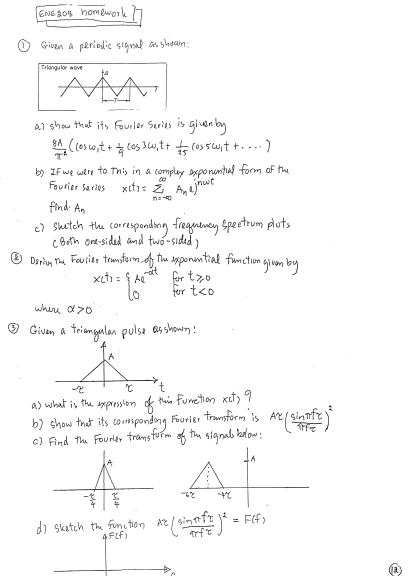 ENE208 homework 7
① Given a periodic signal as shown:
Triangular wave
A
T
a) show that its Fourier Series is given by
8A/π² (cos ω₁t + 1/9 cos 3ω₁t + 1/25 cos 5ω₁t + ....)
b) If we were to this in a complex exponential form of the
Fourier Series x(t) = ∞ Σ n=-∞ Aₙ e^jnωt
find Aₙ
c) sketch the corresponding frequency spectrum plots
(Both one-sided and two-sided)
② Derive the Fourier transform of the exponential function given by
x(t) = { Ae^-αt for t≥0
0 for t<0
where α>0
③ Given a triangular pulse as shown:
A
-τ τ t
a) what is the expression of this function x(t)?
b) show that its corresponding Fourier transform is Aτ (sin πfτ / πfτ)²
c) Find the Fourier transform of the signals below:
A A
-τ/4 τ/4 -6τ -4τ
d) sketch the function Aτ (sin πfτ / πfτ)² = F(f)
F(f)